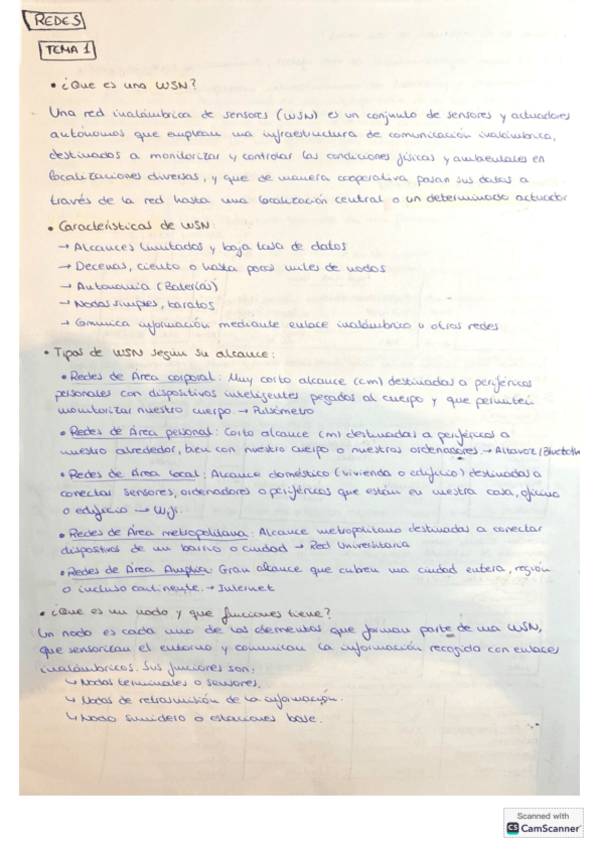 REDES
TEMA 1
• ¿Que es una WSN?
Una red inalámbrica de sensores (WSN) es un conjunto de sensores y actuadores
autónomos que emplean una infraestructura de comunicación inalámbrica,
destinados a monitorizar y controlar las condiciones físicas y ambientales en
localizaciones diversas, y que de manera cooperativa pasan sus datos a
través de la red hasta una localización central o un determinado actuador
• Características de WSN:
→ Alcances limitados y baja tasa de datos
→ Decenas, ciento o hasta pocos miles de nodos
→ Autonomía (Baterías)
→ Nodos simples, baratos
→ Comunica información mediante enlace inalámbrico u otras redes
• Tipos de WSN según su alcance:
• Redes de Área corporal: Muy corto alcance (cm) destinadas a periféricos
personales con dispositivos inteligentes pegados al cuerpo y que permiten
monitorizar nuestro cuerpo → Pulsómetro
• Redes de Área personal: Corto alcance (m) destinadas a periféricos a
nuestro alrededor, bien con nuestro cuerpo o nuestros ordenadores → Altavoz/Bluetooth
• Redes de Área local: Alcance doméstico (vivienda o edificio) destinadas a
conectar sensores, ordenadores o periféricos que están en nuestra casa, oficina
o edificio → Wifi.
• Redes de Área metropolitana: Alcance metropolitano destinadas a conectar
dispositivos de un barrio o ciudad → Red Universitaria
• Redes de Área Amplia: Gran alcance que cubren una ciudad entera, región
o incluso continente. → Internet
• ¿Que es un nodo y que funciones tiene?
Un nodo es cada uno de los elementos que forman parte de una WSN,
que sensorizan el entorno y comunican la información recogida con enlaces
inalámbricos. Sus funciones son:
↳ Nodos terminales o sensores.
↳ Nodos de retrasmisión de la información.
↳ Nodo sumidero o estaciones base.
Scanned with
CS CamScanner